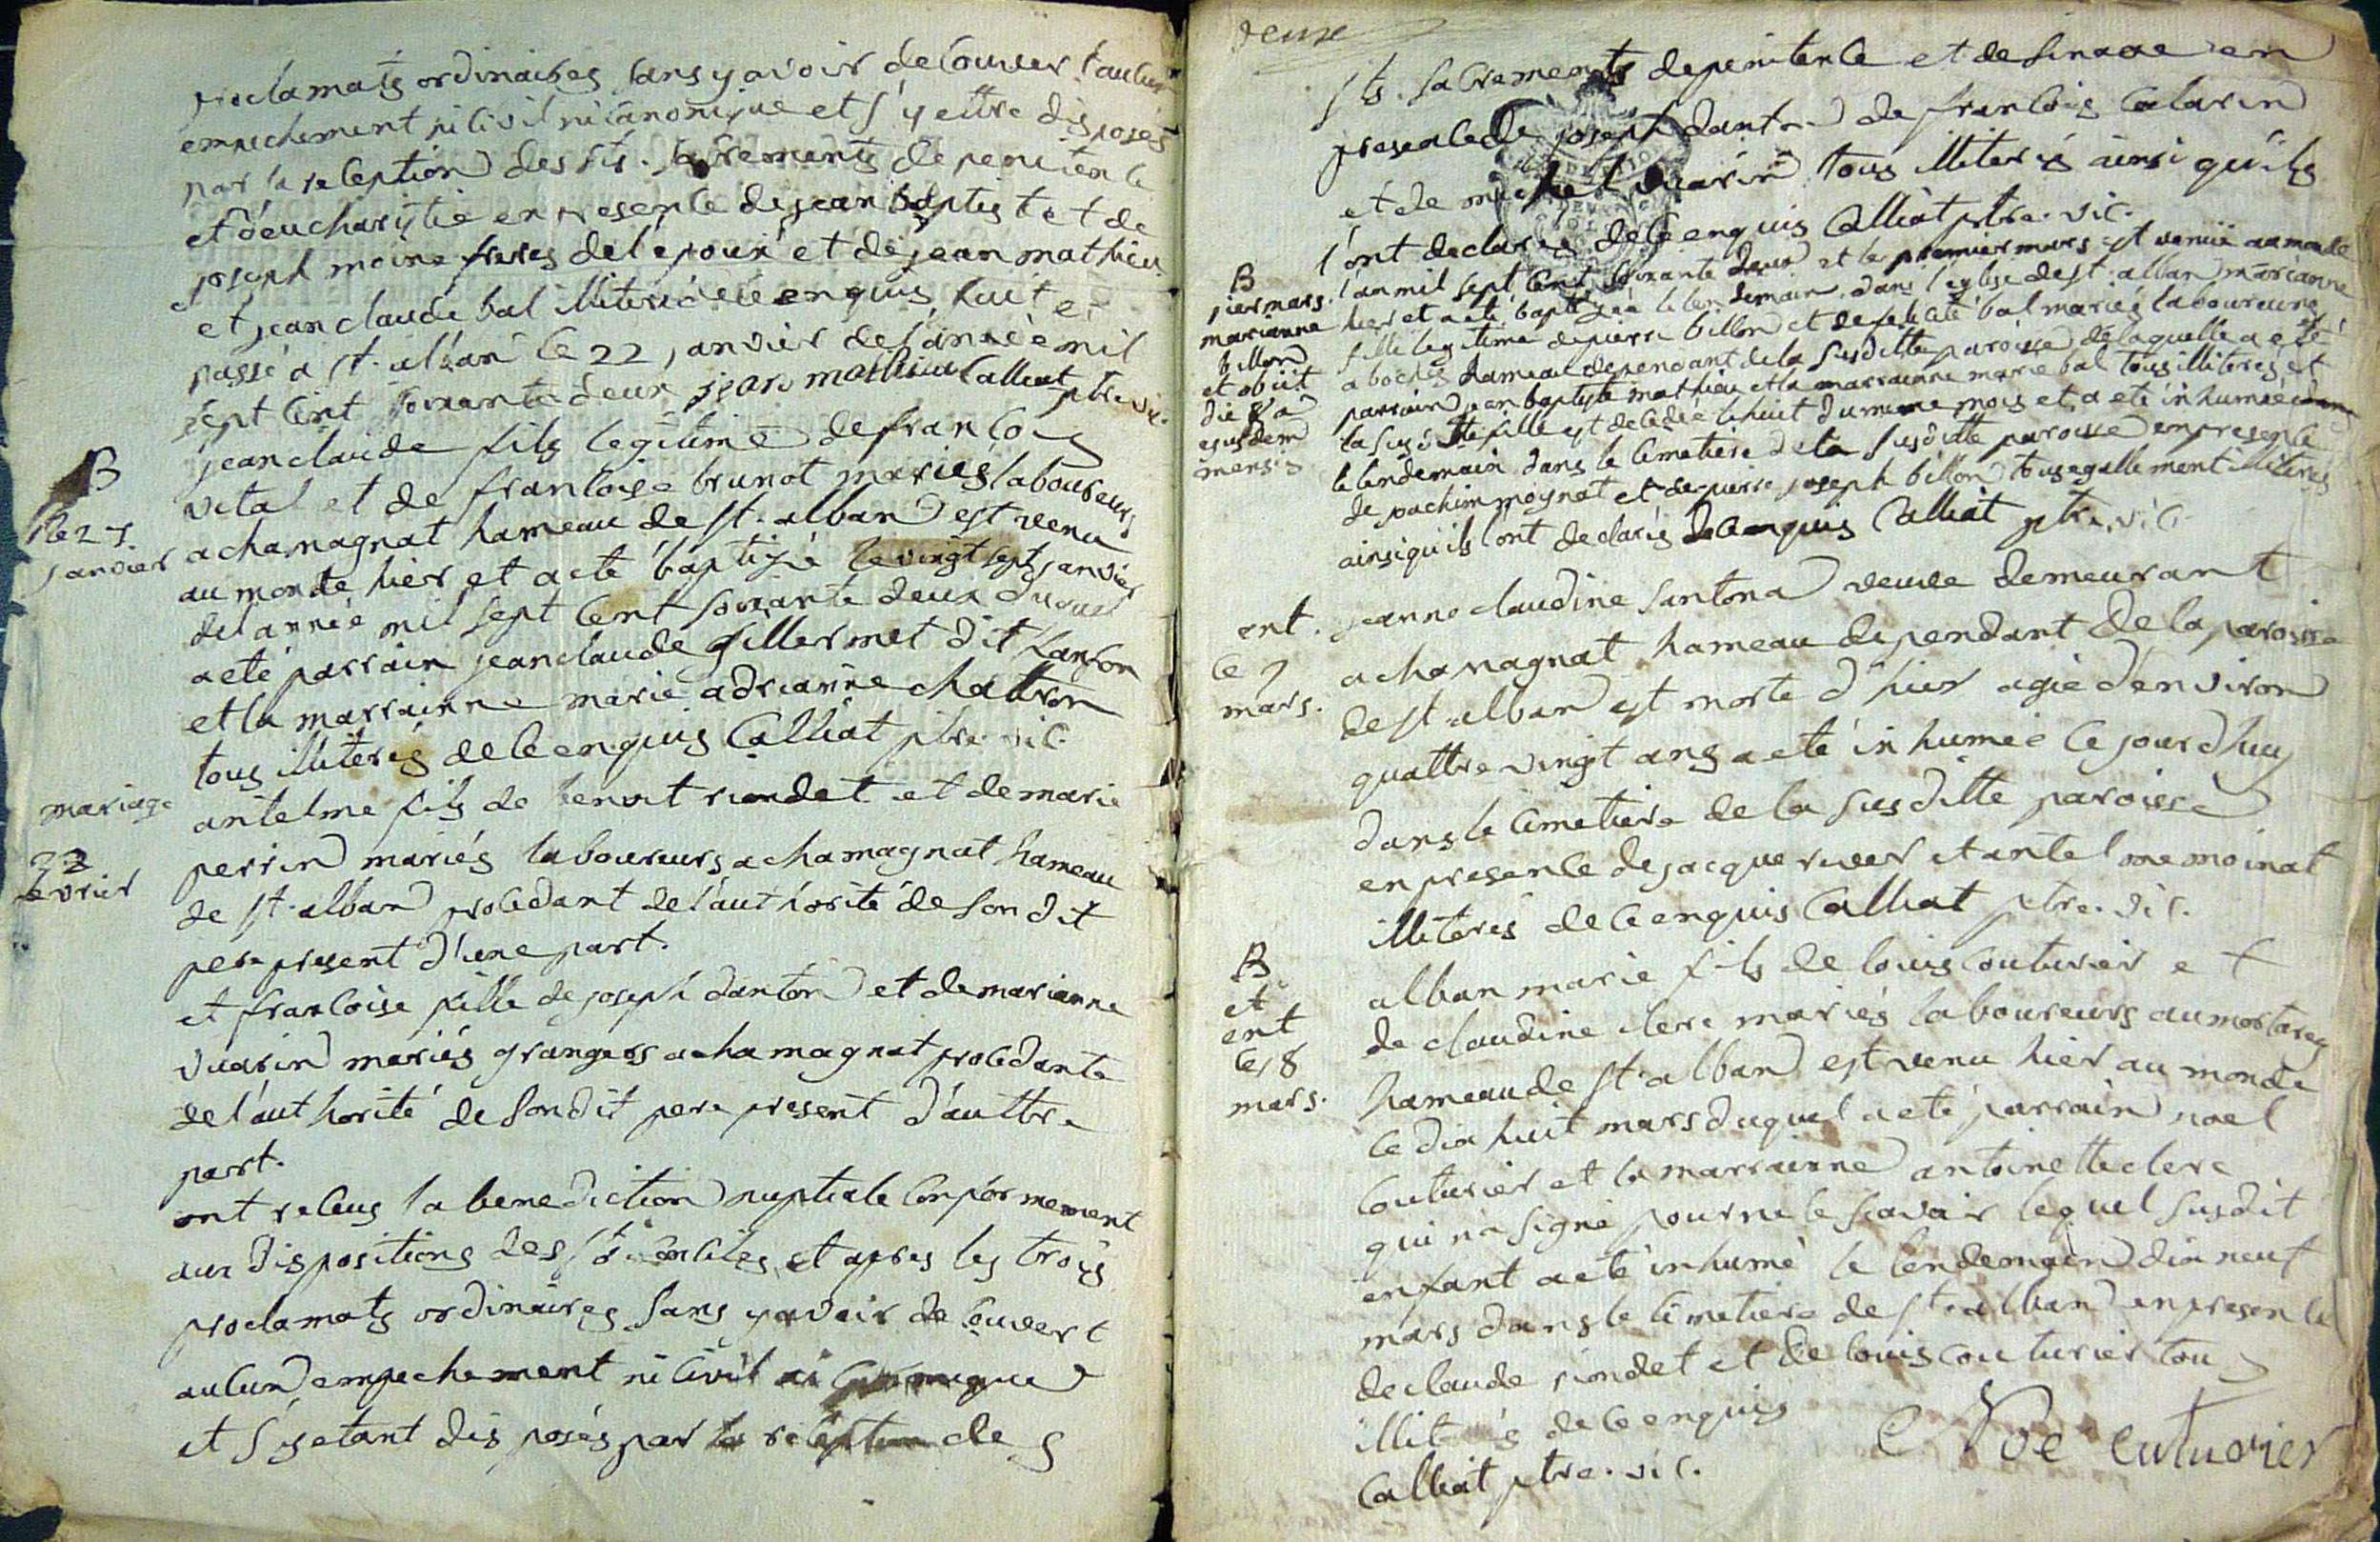 proclamats ordinaires sans y avoir decouvert aucun
empechement ni civil ni canonique et s'y ettre disposés
par la reception des sts. sacrements de penitence
et d'eucharistie en presence de jean baptiste et de
joseph moine freres de l'epoux et de jean mathieu
et jean claude bal illiterés de ce enquis fait et
passé a st. alban le 22 janvier de l'année mil
sept cent soixante deux jean mathieu Calliat ptre vic.
B
le 27
janvier
jean claude fils legitime de francois
vital et de francoise brunot mariés laboureurs
a chamagnat hameau de st. alban est venu
au monde hier et a eté baptizé le vingt sept janvier
de l'année mil sept cent soixante deux duquel
a eté parrain jean claude guillermet dit
et la marrainne marie adrianne chattron
tous illiterés de ce enquis Calliat ptre vic.
mariage
22
evrier
antelme fils de benoit riondet et de marie
perrin mariés laboureurs a chamagnat hameau
de st. alban procedant de l'authorité de son dit
pere present d'une part.
et francoise fille de joseph danton et de marianne
vuarin mariés grangers a chamagnat procedante
de l'authorité de son dit pere present d'auttre
part.
ont recus la benediction nuptiale conformement
aux dispositions des sts. conciles et apres les trois
proclamats ordinaires sans y avoir decouvert
aucun empechement ni civil ni canonique
et s'y etant disposés par la reception des
deux
sts. sacrements de penitence et de en
presence de joseph danton de francois
et de michel vuarin tous illiterés ainsi qu'ils
l'ont declarés de ce enquis Calliat ptre. vic.
B
pier mars.
marianne
billon
et obiit
die 8a
ejusdem
mensis
l'an mil sept cent soixante deux et le premier mars est venüe au monde
hier et a eté baptizée le lendemain dans l'eglise de st. alban marianne
fille legitime de pierre billon et de felicité bal mariés laboureurs
a boches hameau dependant de la susditte paroisse de laquelle a eté
parrain jean baptiste mathieu et la marrainne marie bal tous illiterés et
la susditte fille est decedée le huit du meme mois et a eté inhumée
le lendemain dans le cimetiere de la susditte paroisse en presence
de pachin moynat et de pierre joseph billon tous egallement illiterés
ainsi qu'ils l'ont declarés de ce enquis Calliat ptre. vic.
ent.
le 7
mars.
jeanne claudine santona veuve demeurant
a chanagnat hameau dependant de la paroisse
de st. alban est morte d'hier agée d'environ
quattre vingt ans a eté inhumée ce jourd'huy
dans le cimetiere de la susditte paroisse
en presence de jacque et antelme moinat
illiterés de ce enquis Calliat ptre. vic.
B
et
ent
le 18
mars.
alban marie fils de louis couturier et
de claudine clerc mariés laboureurs au mortarey
hameau de st. alban est venu hier au monde
le dix huit mars duquel a eté parrain noel
couturier et la marrainne antoinette clerc
qui n'a signé pour ne le scavoir lequel susdit
enfant a eté inhumé le lendemain dix neuf
mars dans le cimetiere de st. alban en presence
de claude riondet et de louis couturier tous
illiterés de ce enquis
Calliat ptre. vic.
Noe cutuerier